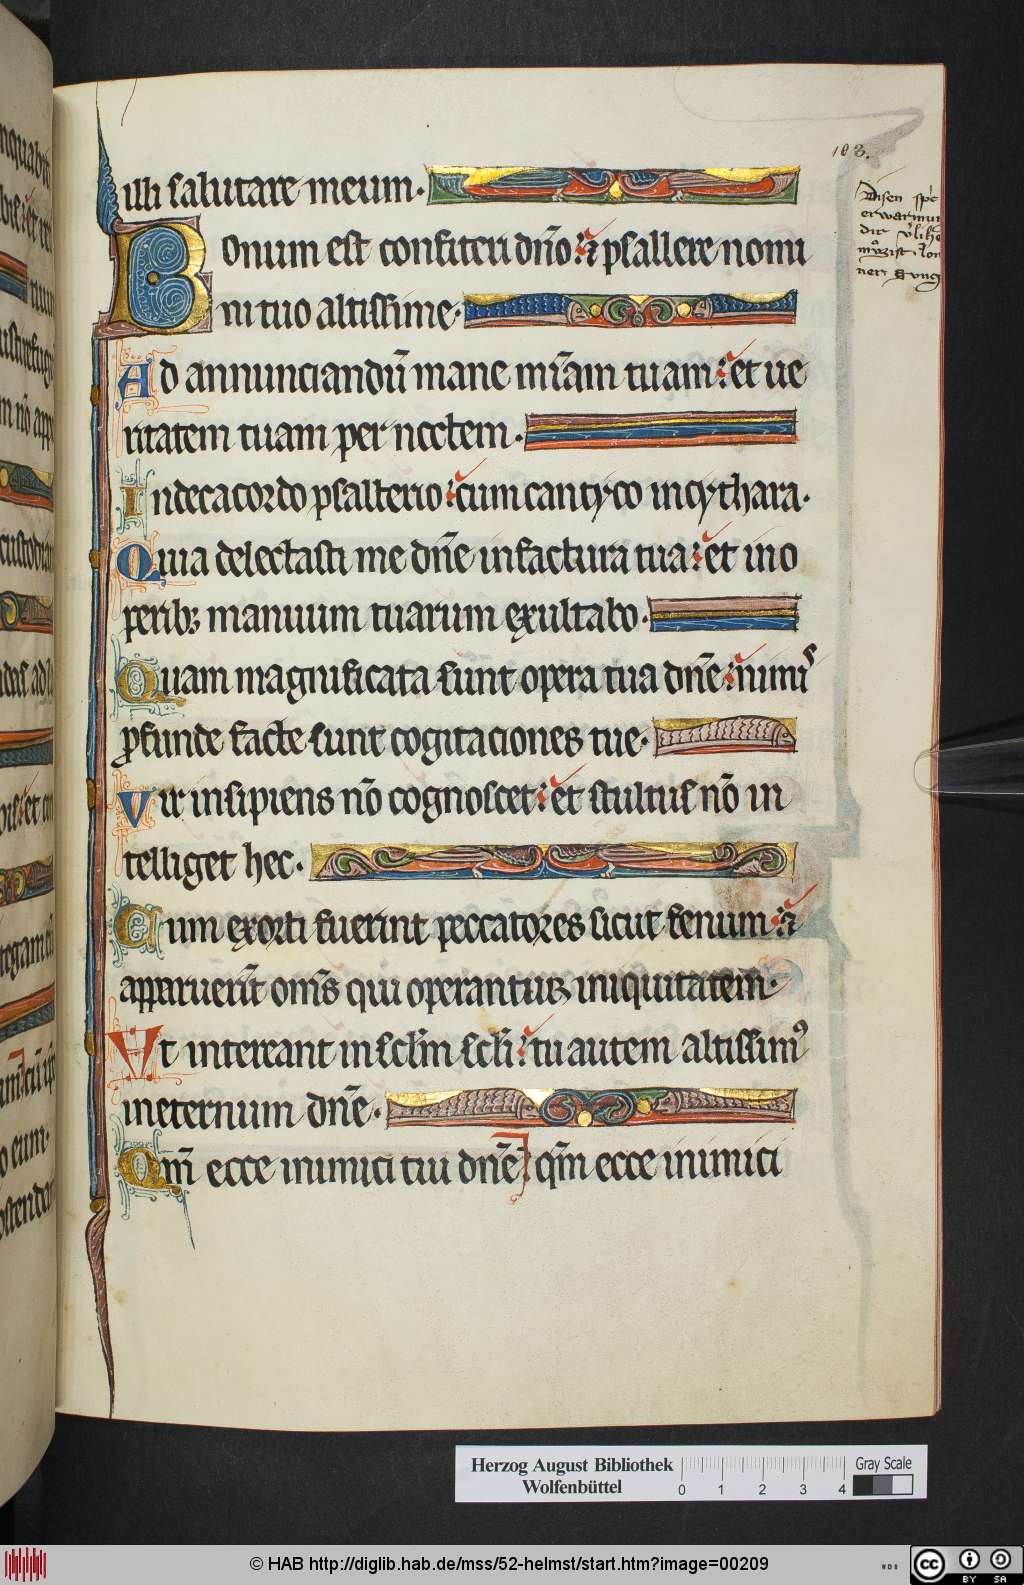 103.
illi salutare meum·
Bonum est confiteri dn̄o ⁊ psallere nomi
ni tuo altissime·
Ad annunciandū mane mīam tuam et ue
ritatem tuam per noctem·
In decacordo psalterio cum cantyco in cythara·
Quia delectasti me dn̄e in factura tua et in o
peribꝫ manuum tuarum exultabo·
Quam magnificata sunt opera tua dn̄e nimis
ꝓfunde facte sunt cogitaciones tue·
Vir insipiens nō cognoscet et stultus nō in
telliget hec·
Cum exorti fuerint peccatores sicut fenum ⁊
apparuerīt om̄s qui operantur iniquitatem·
Vt intereant in sc̄lm sc̄li tu autem altissimꝰ
in eternum dn̄e·
Qm̄ ecce inimici tui dn̄e qm̄ ecce inimici
Disen
Herzog August Bibliothek
Wolfenbüttel
Gray Scale
0 1 2 3 4
© HAB http://diglib.hab.de/mss/52-helmst/start.htm?image=00209
WDB
cc BY SA